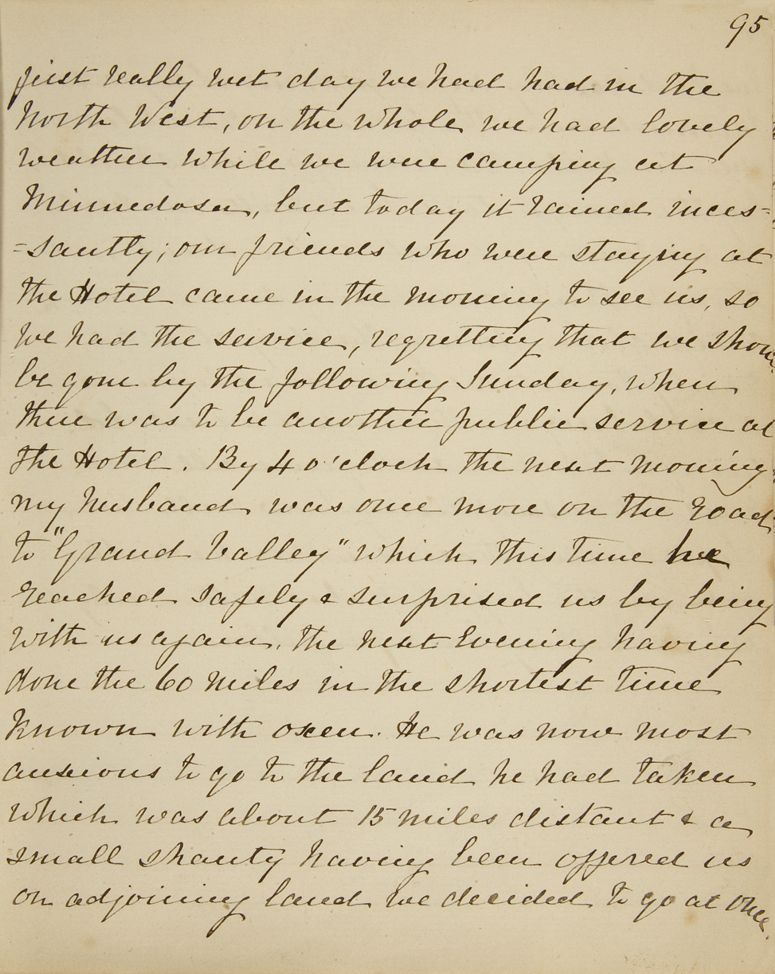 95
first really wet day we had had in the
North West, on the whole we had lovely
weather while we were camping at
Minnedosa, but today it rained inces=
=santly; our friends who were staying at
the Hotel came in the morning to see us, so
we had the service, regretting that we should
be gone by the following Sunday, when
there was to be another public service at
the Hotel. By 4 o'clock the next morning
my husband was once more on the road
to "Grand Valley" which this time he
reached safely & surprised us by being
with us again, the next Evening having
done the 60 miles in the shortest time
known with oxen. He was now most
anxious to go to the land he had taken
which was about 15 miles distant & a
small shanty having been offered us
on adjoining land we decided to go at once.